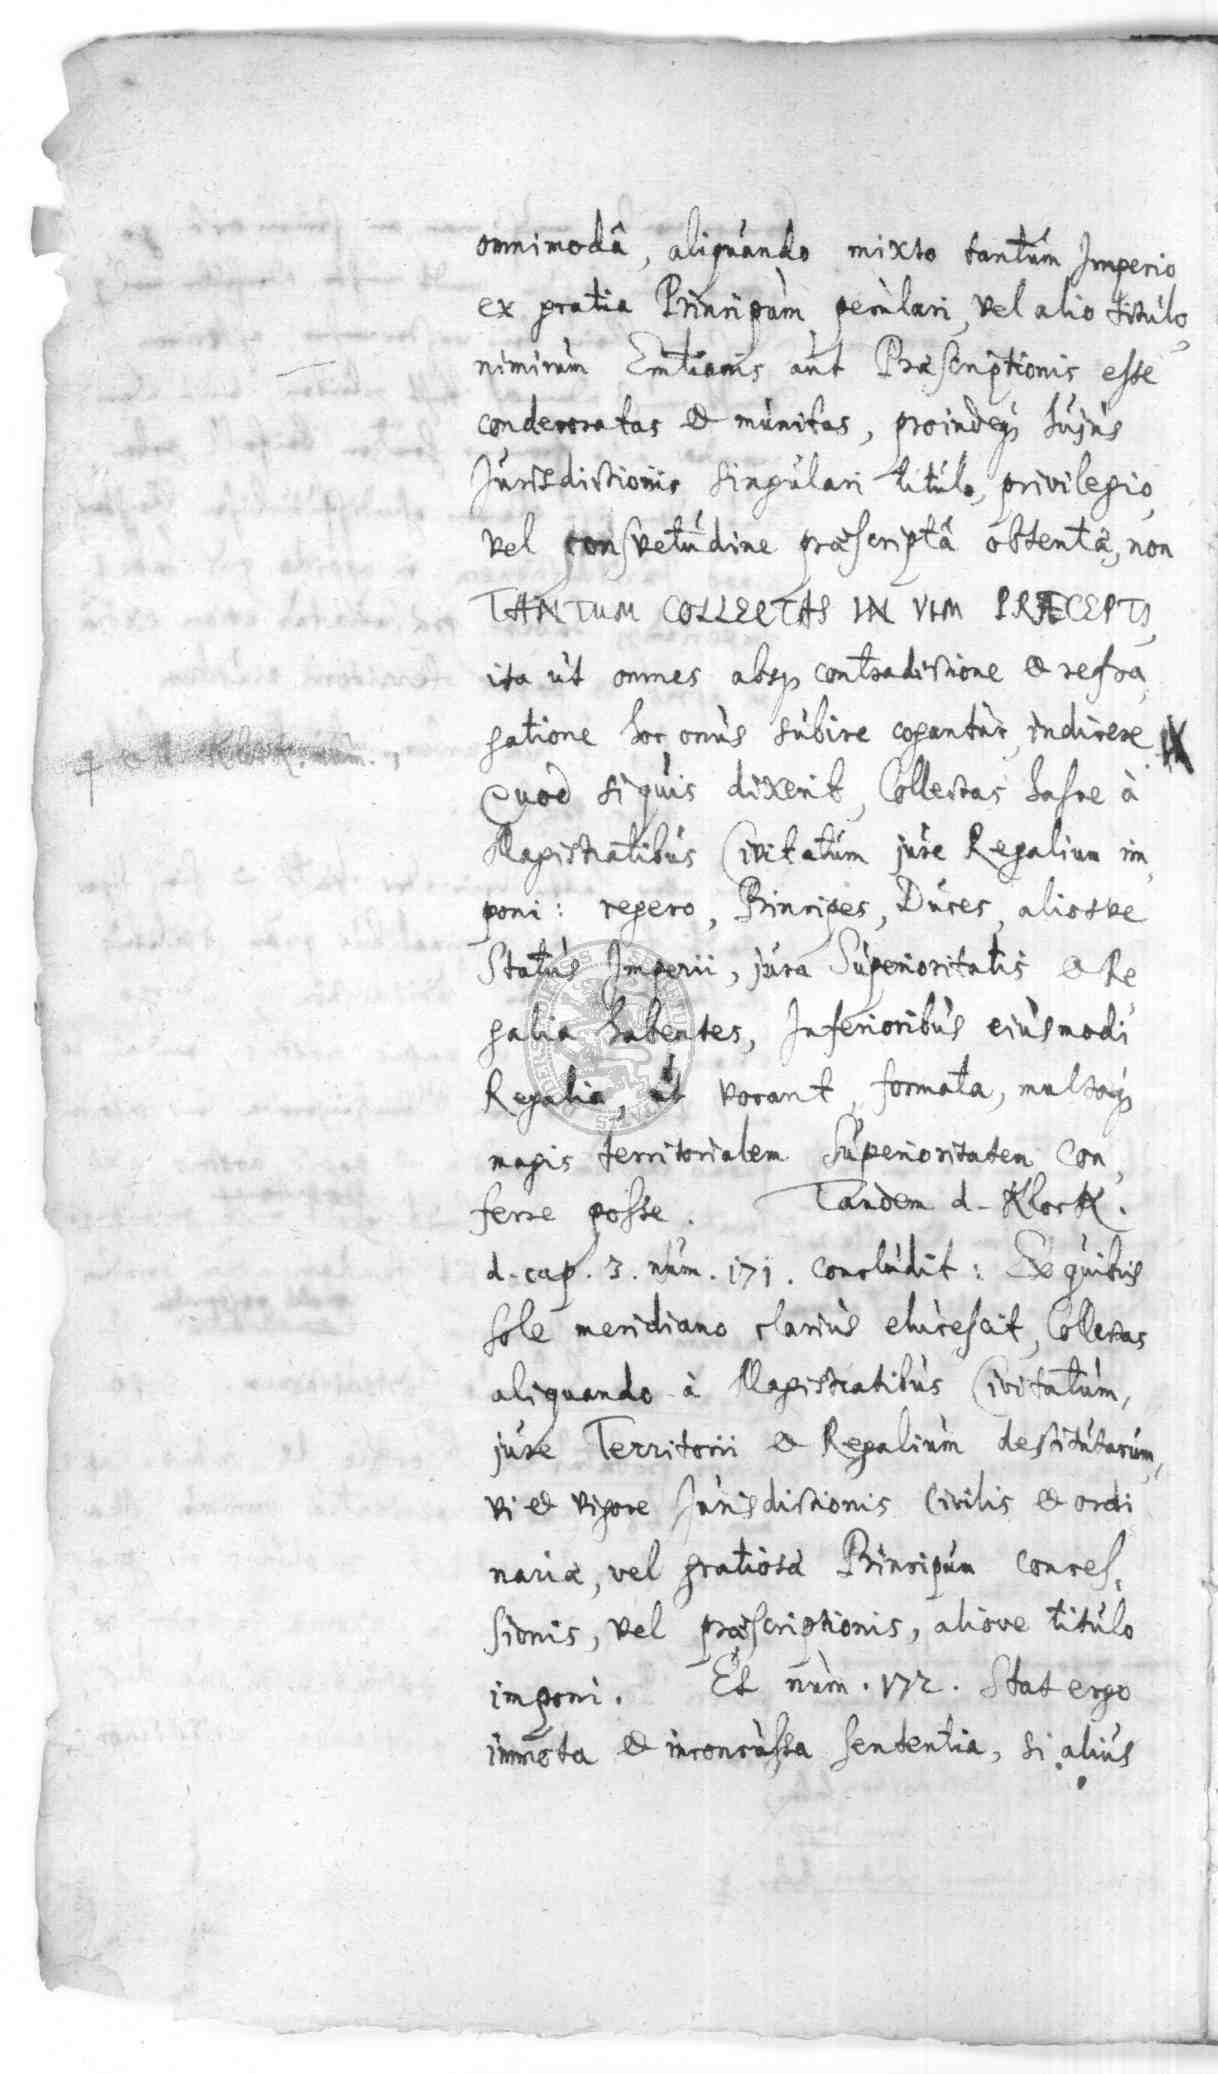 omnimodâ, aliquando mixto tantúm Imperio
ex gratia Principùm peculari, vel alio titulo,
nimirùm Emtionis aut Præscriptionis esse
condecoratas & munitas, proindeq; hujùs
Jurisdictionis singulari titulo, privilegio,
vel consvetudine præscriptâ obtentâ, non
TANTUM COLLECTAS IN VIM PRÆCEPTI,
ita ut omnes absq; contradictione & refra,
gatione hoc onus subire cogantùr, indicere
Quod siquis dixerit, Collectas hasce à
Magistratibus Civitatum jure Regalium im,
poni: regero, Principes, Duces, aliosve
Status Imperii, jura Superioritatis & Re,
galia habentes, Inferioribus ejusmodi
Regalia, ut vocant, formata, multoq;
magis territorialem Superioritatem con,
ferre posse. Tandem d. Klock.
d. cap. 3. num. 171. concludit: Ex quibus
sole meridiano clarius elucescit, Collectas
aliquando à Magistratibus Civitatùm,
jure Territorii & Regalium destitutarum,
vi & vigore Jurisdictionis Civilis & ordi
nariæ, vel gratiosæ Principum conces,
sionis, vel præscriptionis, aliove titulo
imponi. Et num. 172. Stat ergo
immota & inconcussa sententia, si alius